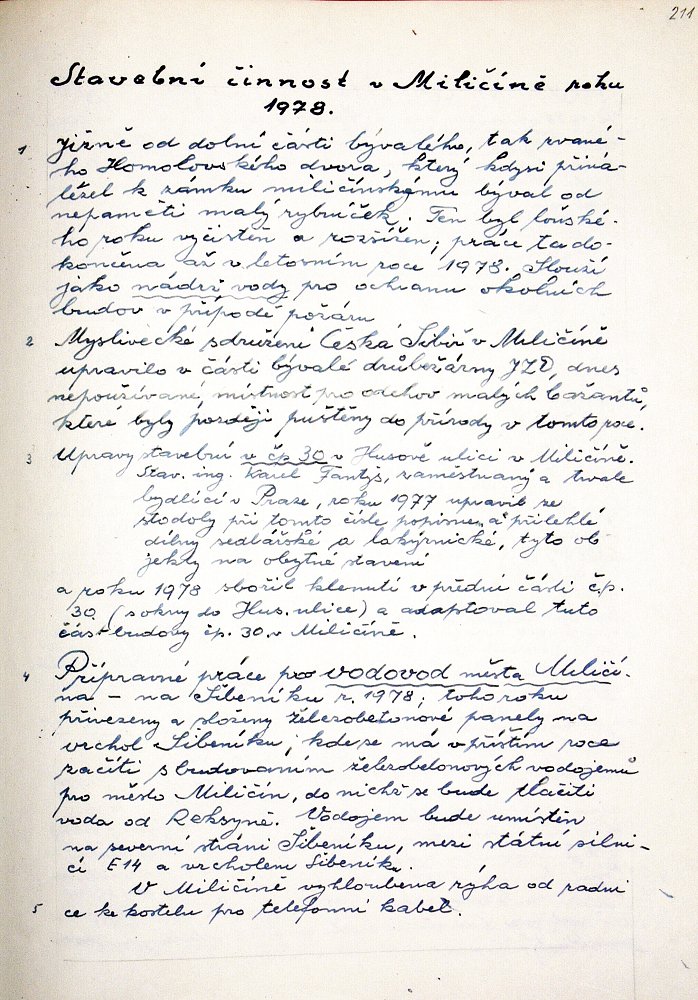 211
Stavební činnost v Miličíně roku
1978.
1 Jižně od dolní části bývalého, tak zvané-
ho Homolovského dvora, který kdysi příná-
ležel k zámku miličínskému býval od
nepaměti malý rybníček. Ten byl loňské-
ho roku vyčistěn a rozšířen; práce ta do-
končena až v letošním roce 1978. Slouží
jako nádrž vody pro ochranu okolních
budov v přípodě požáru
2 Myslivecké sdružení Česká Sibiř v Miličíně
upravilo v části bývalé drůbežárny JZD, dnes
nepoužívané, místnost pro odchov malých bažantů,
které byly později puštěny do přírody v tomto roce.
3 Úpravy stavební v čp 30 v Husově ulici v Miličíně.
Stav. ing. Karel Fantyš, zaměstnaný a trvale
bydlící v Praze, roku 1977 upravil ze
stodoly při tomto čísle popisném a přilehlé
dílny sedlářské a lakýrnické, tyto ob
jekty na obytné stavení
a roku 1978 sbořil klenutí v přední části č.p.
30 (s okny do Hus. ulice) a adaptoval tuto
část budovy čp. 30 v Miličíně.
4 Přípravné práce pro vodovod města Miličí-
na - na Šibeníku r. 1978; toho roku
přivezeny a složeny železobetonové panely na
vrchol Šibeníku, kde se má v příštím roce
začíti s budovaním železobetonových vodojemů
pro město Miličín, do nichž se bude tlačiti
voda od Reksyně. Vodojem bude umístěn
na severní stráni Šibeníku, mezi státní silni-
cí E14 a vrcholem Šibeníku.
V Miličíně vyhloubena rýha od radni
5 ce ke kostelu pro telefonní kabel.